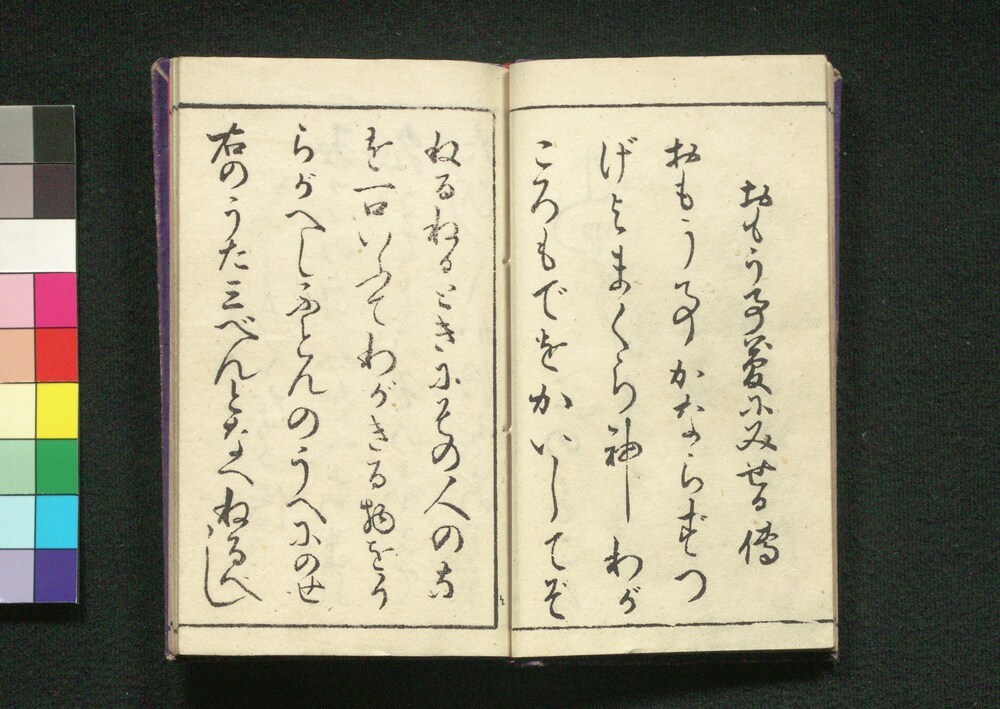 おもう事夢にみせる傳
おもう事かならずつ
げよまくら神わが
ころもでをかいしてぞ
ねるねるときにその人の名
を一口いふてわがきる物をう
らがへしふとんのうへにのせ
右のうた三べんとなへねるべし